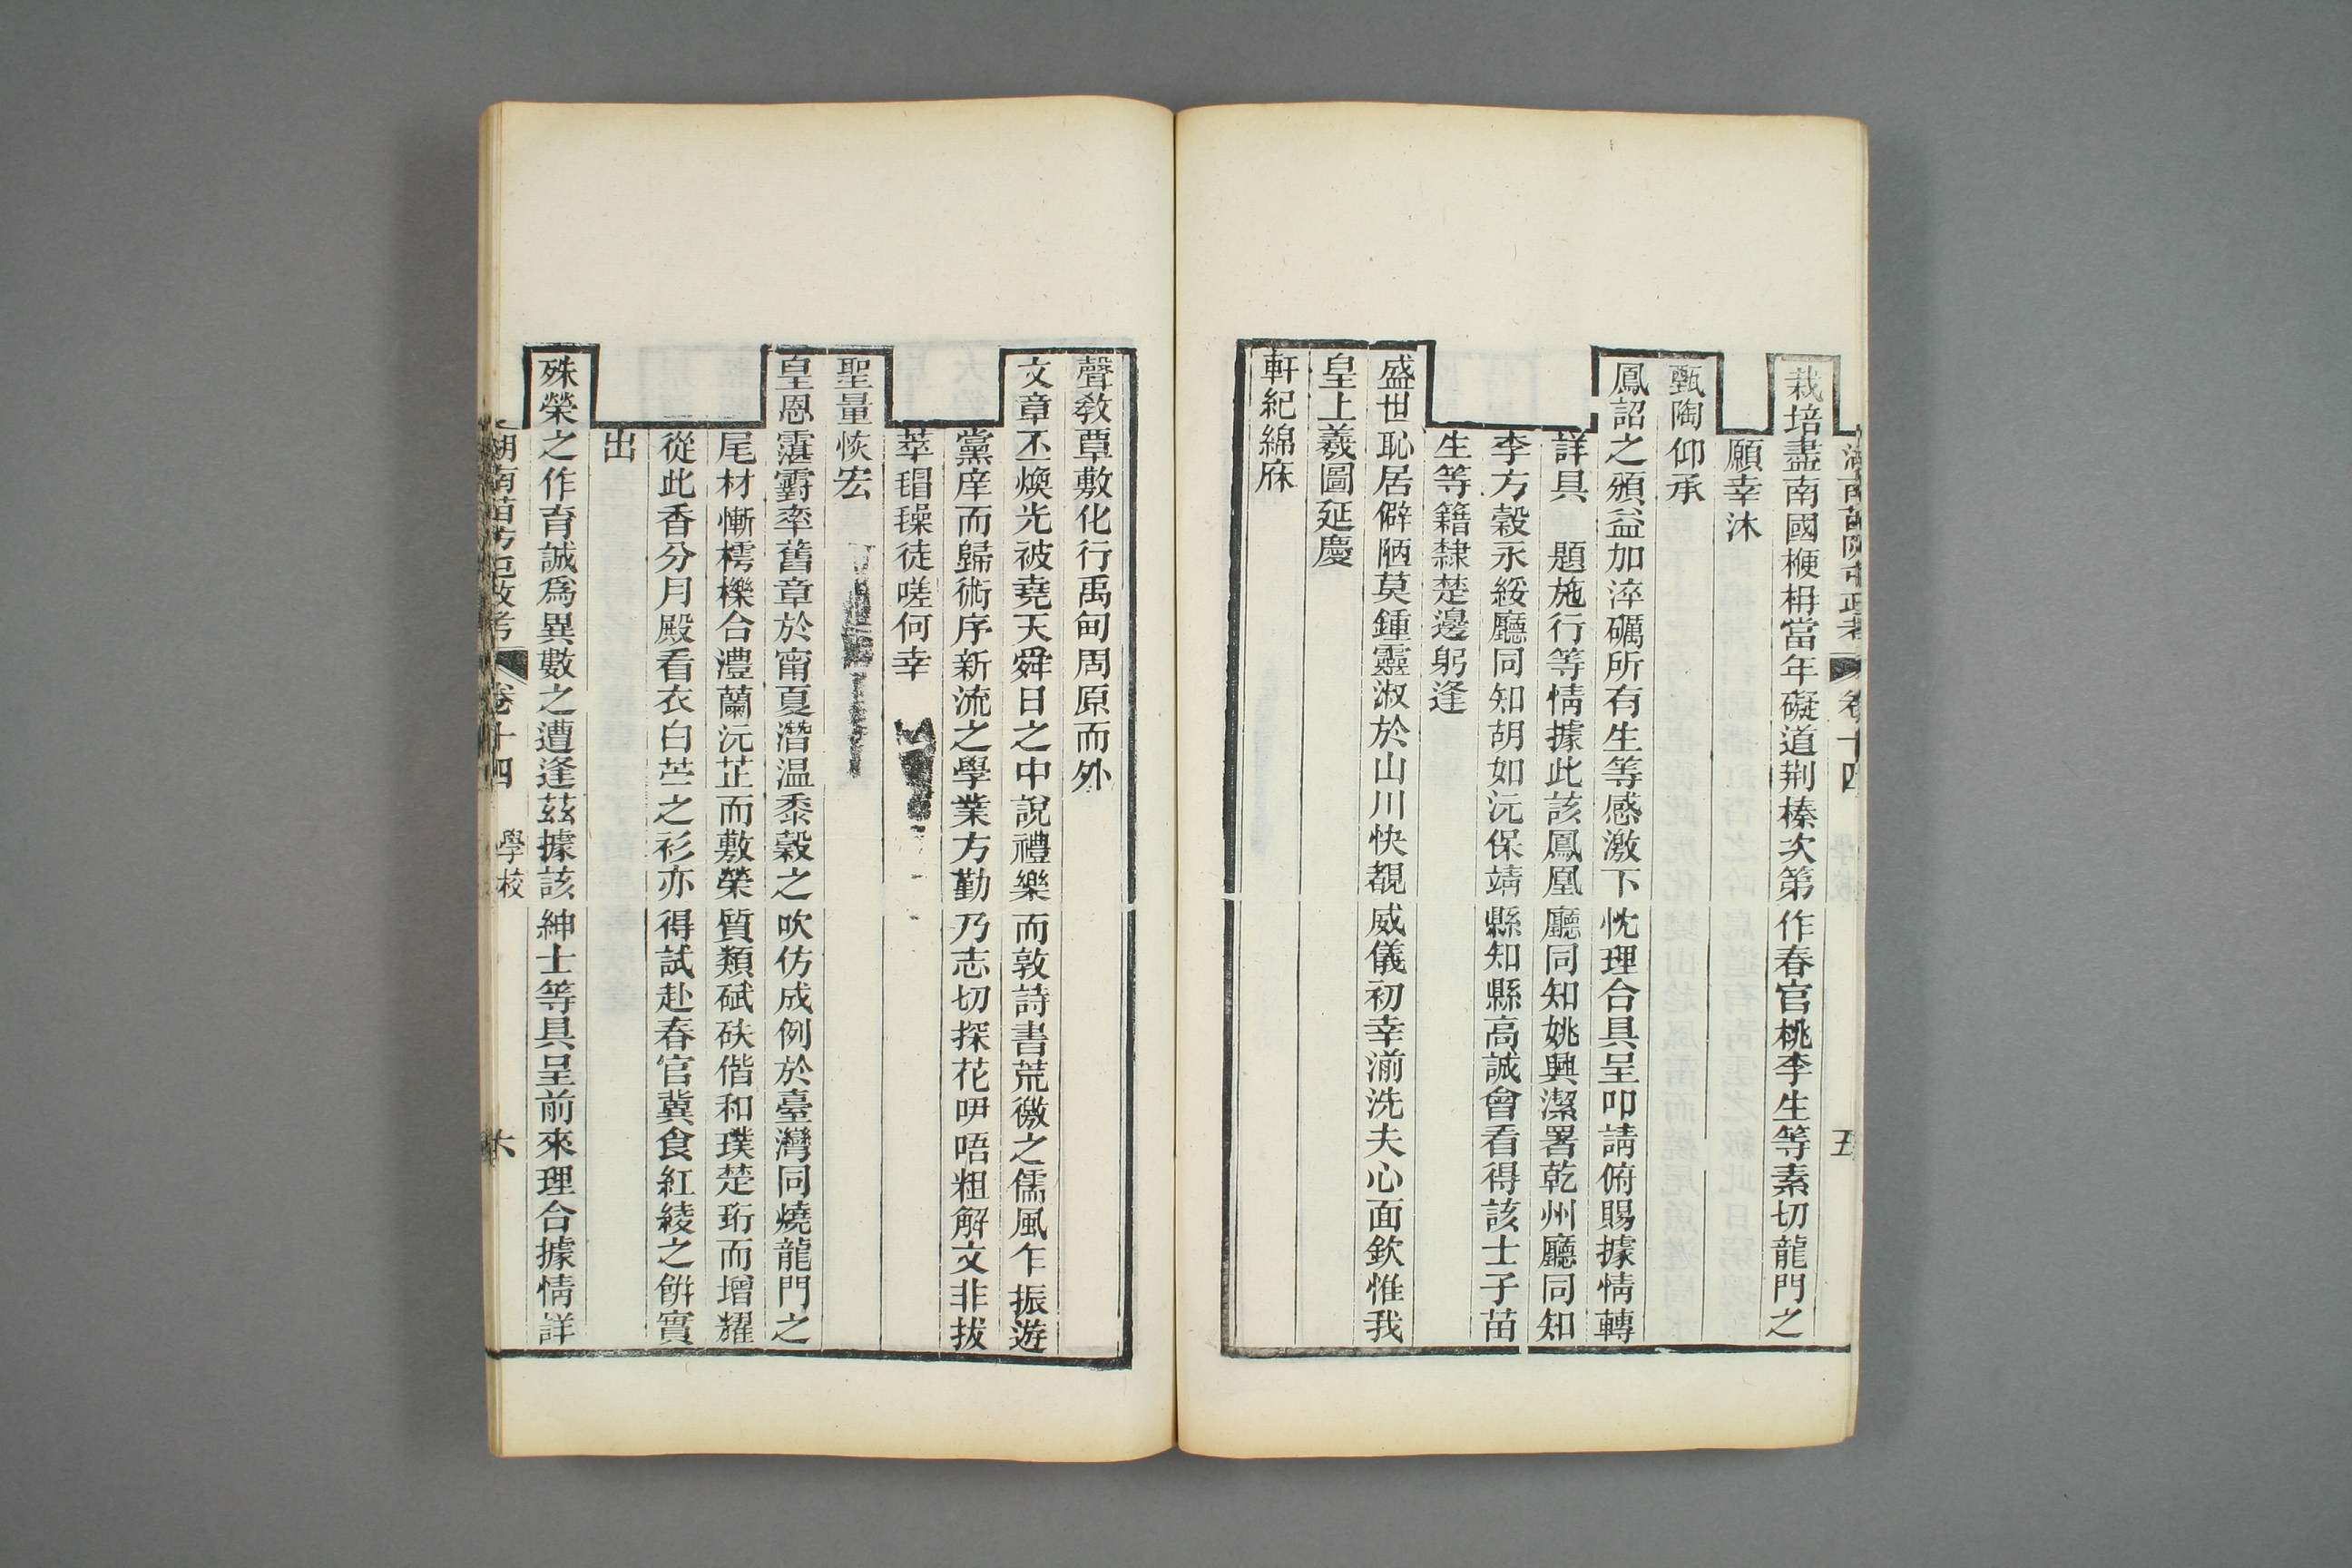 湖南苗防屯政考 卷十四 五
栽培盡南國楩枬當年礙道荆榛次第作春官桃李生等素切龍門之
願幸沐
甄陶仰承
鳳詔之頒益加淬礪所有生等感激下忱理合具呈叩請俯賜據情轉
詳具 題施行等情據此該鳳凰廳同知姚興潔署乾州廳同知
李方穀永綏廳同知胡如沅保靖縣知縣高誠會看得該士子苗
生等籍隸楚邊躬逢
盛世恥居僻陋莫鍾靈淑於山川快覩威儀初幸湔洗夫心面欽惟我
皇上羲圖延慶
軒紀綿庥
聲敎覃敷化行禹甸周原而外
文章丕煥光被堯天舜日之中說禮樂而敦詩書荒徼之儒風乍振遊
黨庠而歸術序新流之學業方勤乃志切探花吚唔粗解文非拔
萃瑁璪徒嗟何幸
聖量恢宏
皇恩霮䨴率舊章於甯夏潛温黍穀之吹仿成例於臺灣同燒龍門之
尾材慚樗櫟合澧蘭沅芷而敷榮質類碔砆偕和璞楚珩而增耀
從此香分月殿看衣白苎之衫亦得試赴春官冀食紅綾之餅實
出
殊榮之作育誠爲異數之遭逢茲據該紳士等具呈前來理合據情詳
湖南苗防屯政考 卷十四 學校 六